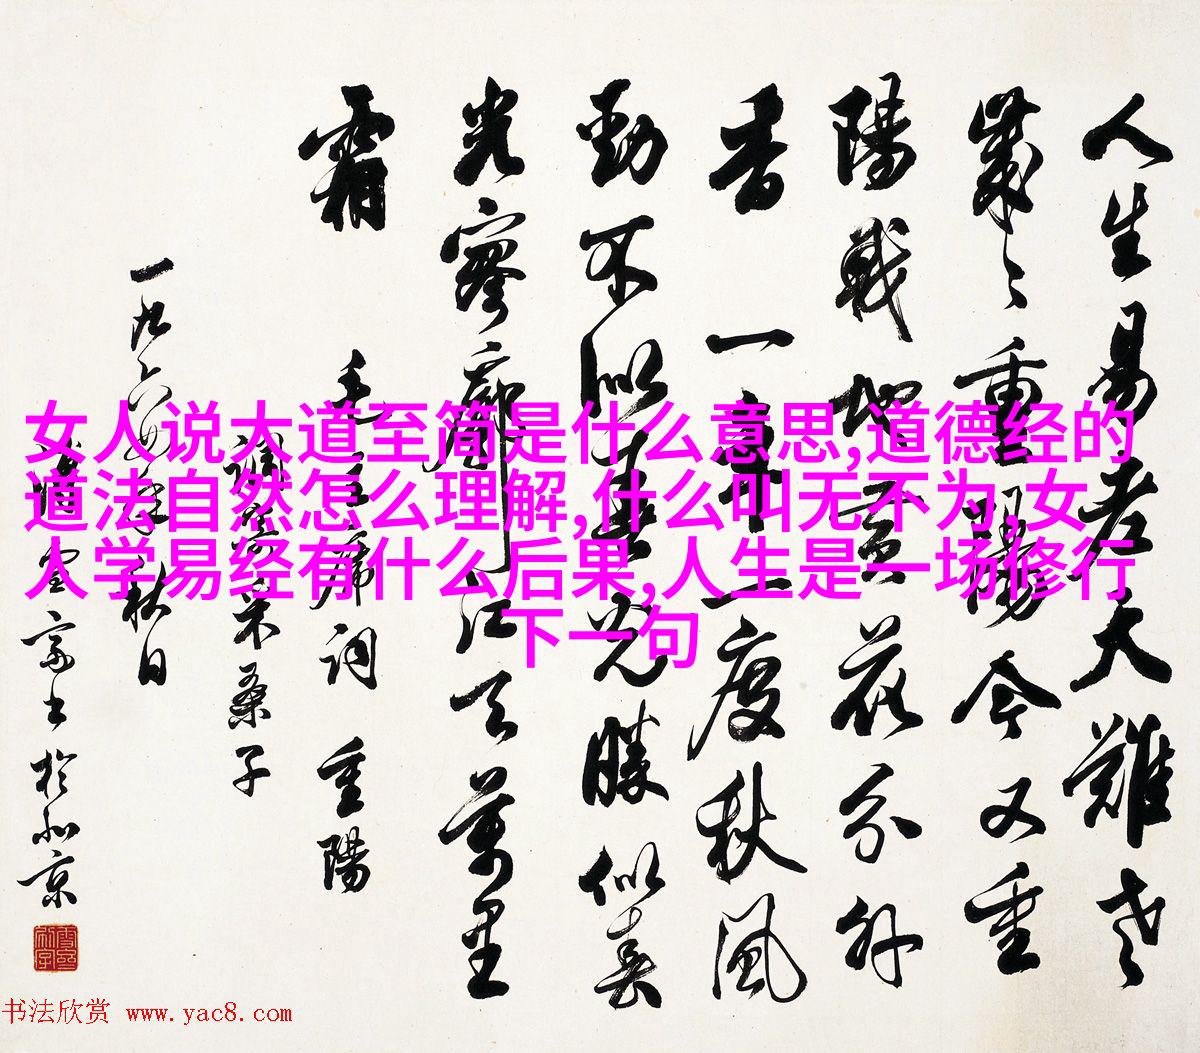 女人说大道至简是什么意思,道德经的
道法自然怎么理解,什么叫无不为,女
人学易经有什么后果,人生是一场修行
下一句
人生易老天難老
歲々重陽今又重
陽戰地黃花分外
香 一年一度秋風
勁不似春光勝似春
光寥廓江天萬里
霜
毛主席詞 重陽
調寄采桑子
一九六年秋日
書於北京
书法欣赏 www.yac8.com